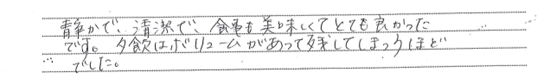 静かで、清潔で、食事も美味しくてとても良かった
です。夕飲はボリュームがあって残してしまうほど
でした。